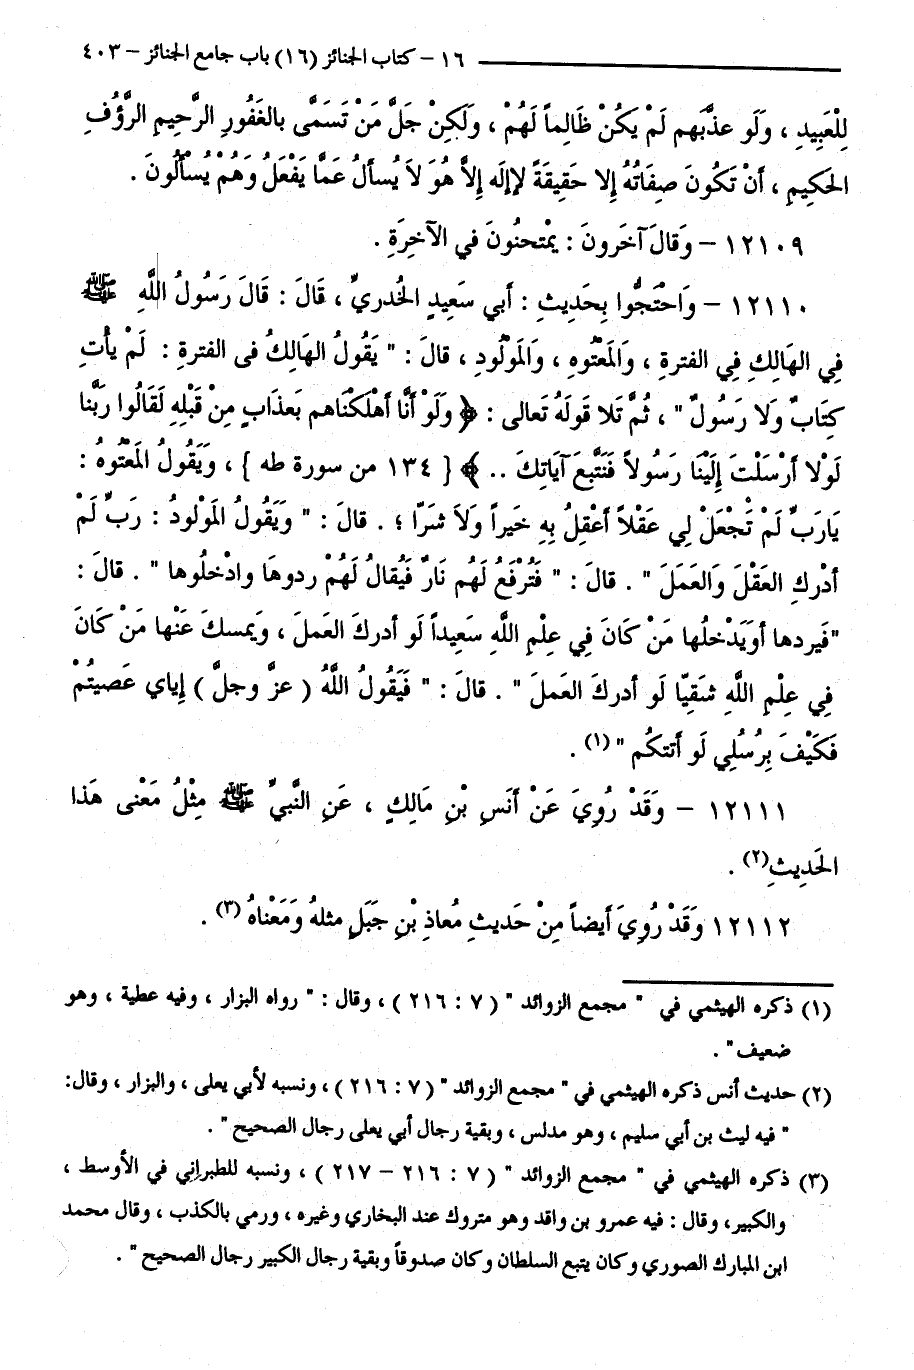 ١٦ – كتاب الجنائز (١٦) باب جامع الجنائز – ٤٠٣
لِلْعَبِيدِ ، وَلَو عذَّبَهم لَمْ يَكُنْ ظَالِماً لَهُمْ ، وَلَكِنْ جَلَّ مَنْ تَسَمَّى بالغَفُورِ الرَّحِيمِ الرَّؤُفِ
الحَكِيمِ ، أَنْ تَكُونَ صِفَاتُهُ إِلا حَقِيقَةً لاإلَه إِلاَّ هُوَ لاَ يُسأَلُ عَمَّا يَفْعَلُ وَهُمْ يُسْأَلُونَ .
١٢١٠٩ – وَقالَ آخَرونَ : يمْتحنُونَ في الآخِرَةِ .
١٢١١٠ – وَاحْتَجُّوا بِحَدِيثِ : أبي سَعِيدٍ الخُدريِّ ، قَالَ : قَالَ رَسُولُ اللَّهِ ﷺ
فِي الهَالِكِ فِي الفترةِ ، وَالمَعْتُوهِ ، وَالمَوْلُودِ ، قالَ : " يَقُولُ الهَالِكُ فى الفترةِ : لَمْ يأْتِ
كِتَابٌ وَلا رَسُولٌ " ، ثُمَّ تَلا قولَهُ تَعالى : ﴿ وَلَوْ أَنَّا أهْلَكْنَاهم بَعذَابٍ مِنْ قَبْلِهِ لَقَالُوا رَبَّنا
لَوْلا أَرْسَلْتَ إِلَيْنَا رَسُولاً فَنَتَّبِعَ آيَاتِكَ .. ﴾ [ ١٣٤ من سورة طه ] ، وَيَقُولُ المَعْتُوهُ :
يَارَبِّ لَمْ تَجْعَلْ لِي عَقْلاً أعْقِلُ بِهِ خَيراً وَلاَ شَرّا ؛ . قالَ : " وَيَقُولُ المَوْلودُ : رَبِّ لَمْ
أدْركِ العَقْلَ وَالعَمَلَ " . قالَ : " فَتُرْفَعُ لَهُم نَارٌ فَيُقالُ لَهُمْ ردوهَا وادْخلُوها " . قالَ :
"فَيردها أويَدْخلُها مَنْ كَانَ فِي عِلْمِ اللَّهِ سَعِيداً لَو أدركَ العَملَ ، وَيمسكَ عَنْها مَنْ كَانَ
فِي عِلْمِ اللَّهِ شَقِيّا لَو أدركَ العَملَ " . قالَ : " فَيَقُولُ اللَّهُ ( عزَّ وجلَّ ) إياي عَصيتُمْ
فَكَيْفَ بِرُسُلِي لَو أَتتكُم " (١) .
١٢١١١ – وَقَدْ رُوِيَ عَنْ أَنَسِ بْنِ مَالِكٍ ، عَنِ النَّبيِّ ﷺ مِثْلُ مَعْنى هَذا
الحَدِيثِ(٢) .
١٢١١٢ وَقَدْ رُوِيَ أيضاً مِنْ حَديثِ مُعاذِ بْنِ جَبَلٍ مثلهُ وَمَعْناهُ (٣) .
(١) ذكره الهيثمي في " مجمع الزوائد " (٧ : ٢١٦) ، وقال : " رواه البزار ، وفيه عطية ، وهو
ضعيف" .
(٢) حديث أنس ذكره الهيثمي في " مجمع الزوائد " (٧ : ٢١٦) ، ونسبه لأبي يعلى ، والبزار ، وقال:
" فيه ليث بن أبي سليم ، وهو مدلس ، وبقية رجال أبي يعلى رجال الصحيح " .
(٣) ذكره الهيثمي في " مجمع الزوائد " (٧ : ٢١٦ – ٢١٧) ، ونسبه للطبراني في الأوسط ،
والكبير، وقال : فيه عمرو بن واقد وهو متروك عند البخاري وغيره ، ورمي بالكذب ، وقال محمد
ابن المبارك الصوري وكان يتبع السلطان وكان صدوقاً وبقية رجال الكبير رجال الصحيح " .